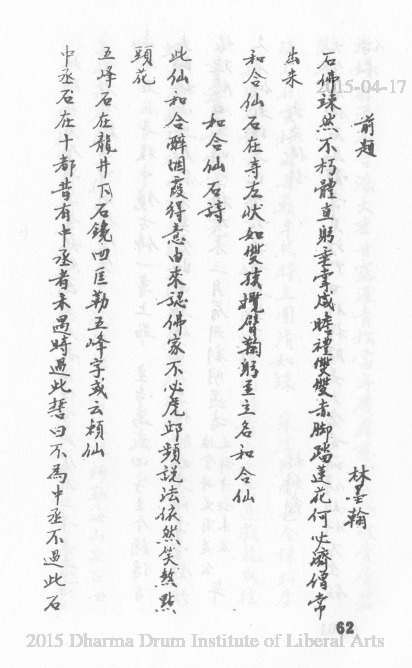 2015-04-17
前題
林墨翰
石佛竦然不朽體直躬垂掌咸瞻禮雙雙赤脚踏蓮花何必濟僧常
出來
和合仙石在寺左狀如雙孩攬臂鞠躬並立名和合仙
和合仙石詩
此仙和合醉烟霞得意由來認佛家不必虎邱頻說法依然笑煞點
頭花
五峰石在龍井下石鏡凹匡勒五峰字或云賴仙
中丞石在十都昔有中丞者未遇時過此誓曰不為中丞不過此石
62
2015 Dharma Drum Institute of Liberal Arts